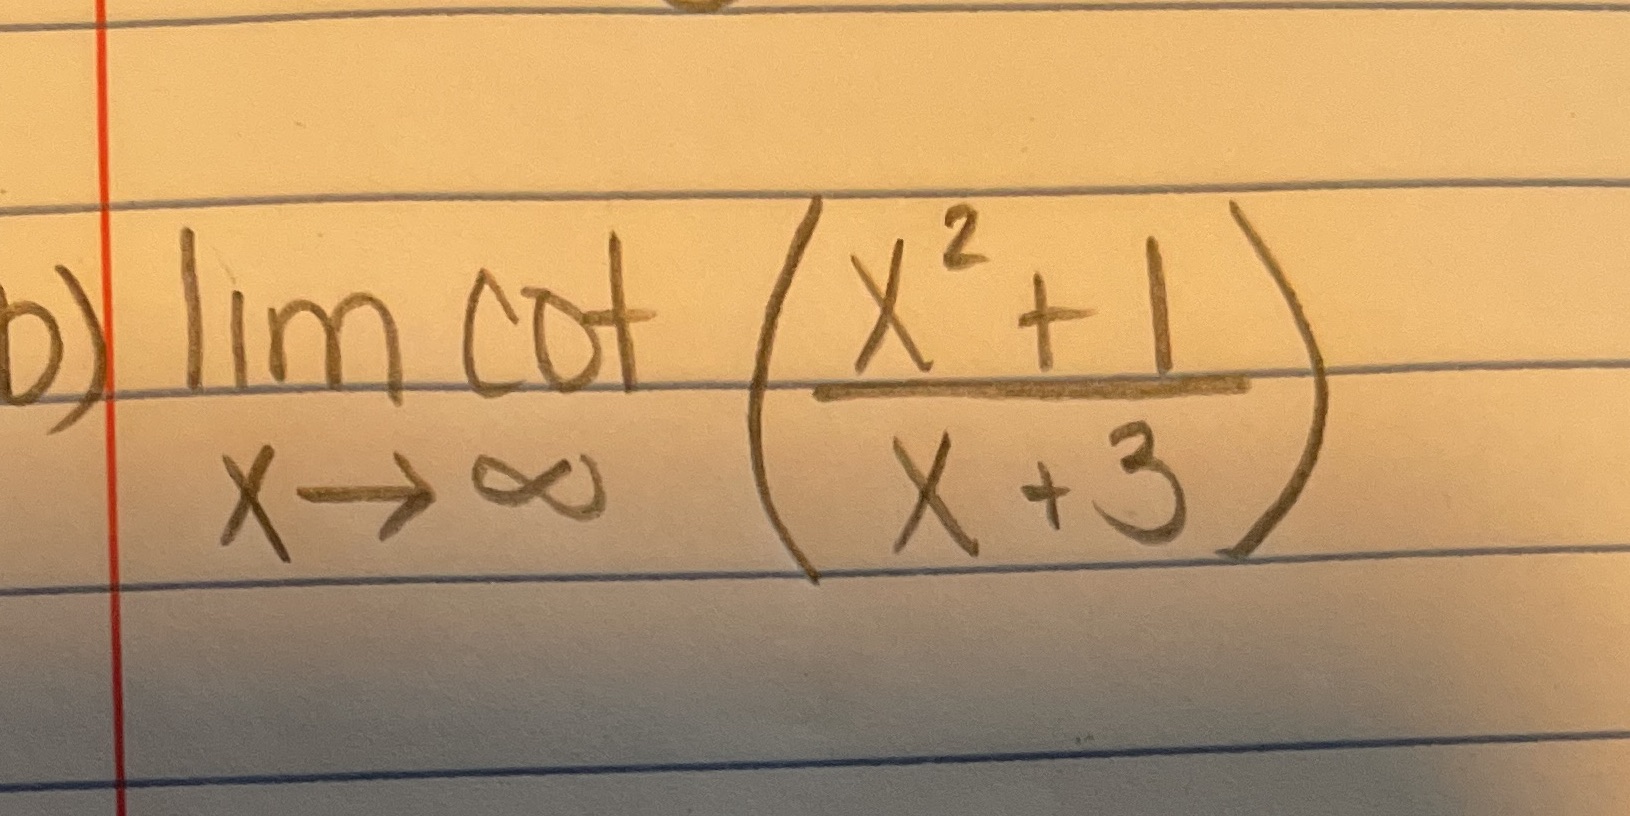 b) lim cot (x² + 1 / x + 3)
x → ∞